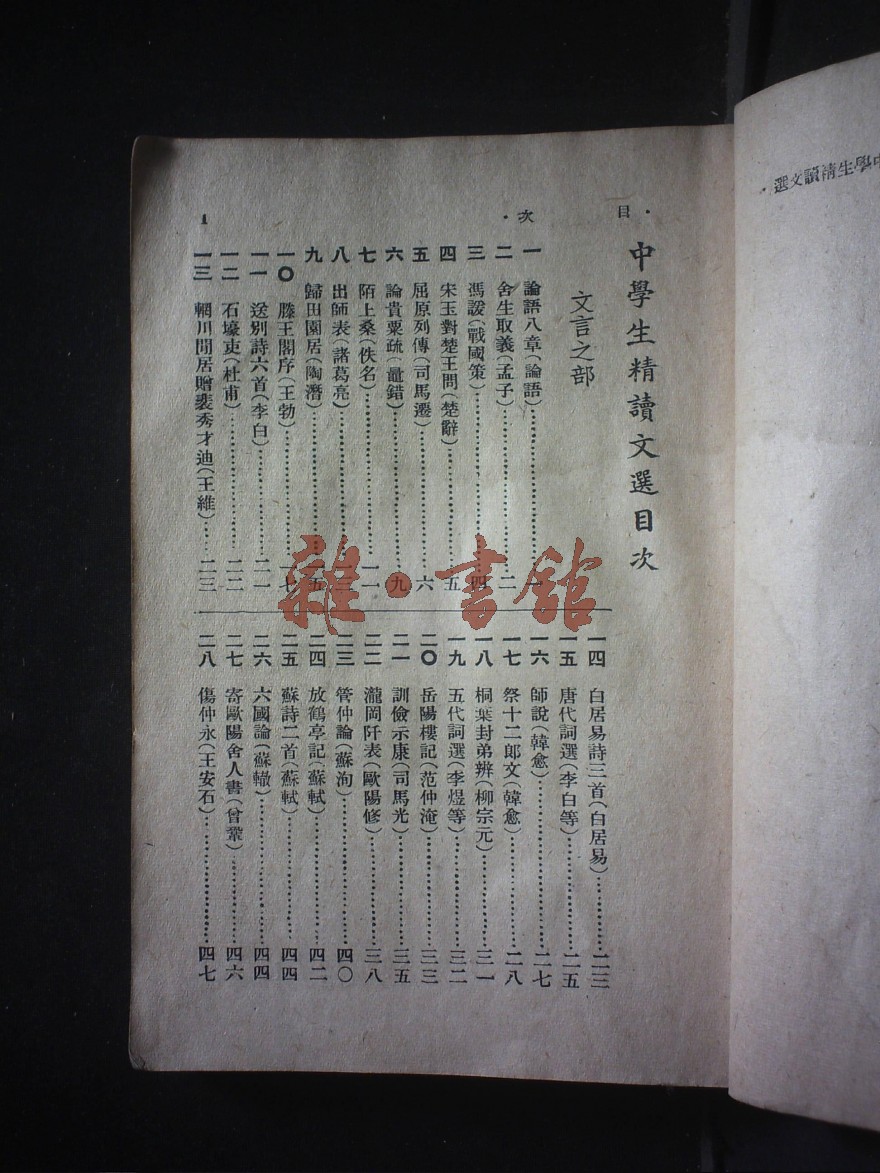 中學生精讀文選
目次
1
中學生精讀文選目次
文言之部
一 論語八章(論語)……一
二 舍生取義(孟子)……二
三 馮諼(戰國策)……四
四 宋玉對楚王問(楚辭)……五
五 屈原列傳(司馬遷)……六
六 論貴粟疏(鼂錯)……九
七 陌上桑(佚名)……一一
八 出師表(諸葛亮)……一三
九 歸田園居(陶潛)……一五
一〇 滕王閣序(王勃)……一七
一一 送別詩六首(李白)……二一
一二 石壕吏(杜甫)……二二
一三 輞川閒居贈裴秀才迪(王維)……二三
一四 白居易詩三首(白居易)……二三
一五 唐代詞選(李白等)……二五
一六 師說(韓愈)……二七
一七 祭十二郎文(韓愈)……二八
一八 桐葉封弟辨(柳宗元)……三一
一九 五代詞選(李煜等)……三二
二〇 岳陽樓記(范仲淹)……三三
二一 訓儉示康(司馬光)……三五
二二 瀧岡阡表(歐陽修)……三八
二三 管仲論(蘇洵)……四〇
二四 放鶴亭記(蘇軾)……四二
二五 蘇詩二首(蘇軾)……四四
二六 六國論(蘇轍)……四四
二七 寄歐陽舍人書(曾鞏)……四六
二八 傷仲永(王安石)……四七
雜·書館